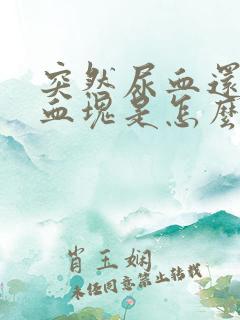 突然尿血還
血塊是怎麼
肖玉娴
未经同意禁止转载